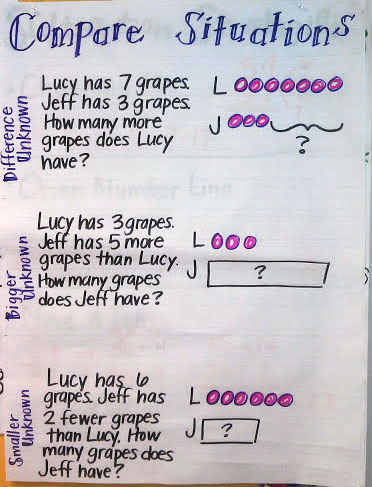 Compare Situations
Difference
Unknown
Lucy has 7 grapes.
Jeff has 3 grapes.
How many more
grapes does Lucy
have?
L
J
?
Bigger
Unknown
Lucy has 3 grapes.
Jeff has 5 more
grapes than Lucy.
How many grapes
does Jeff have?
L
J ?
Smaller
Unknown
Lucy has 6
grapes. Jeff has
2 fewer grapes
than Lucy. How
many grapes does
Jeff have?
L
J ?